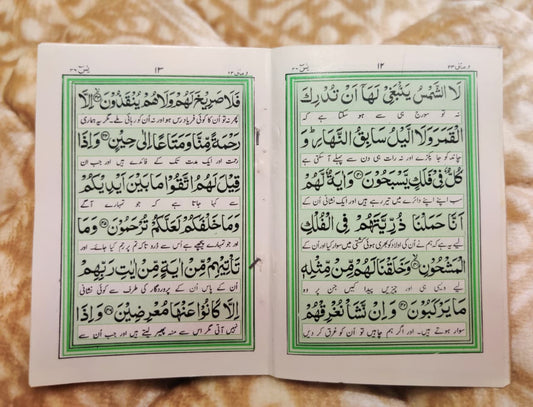 ومالی ۲۳ ۱۲ یٰسٓ ۳۶
لَا الشَّمْسُ يَنْۢبَغِىْ لَهَاۤ اَنْ تُدْرِكَ
نہ تو سورج ہی سے ہو سکتا ہے کہ
الْقَمَرَ وَلَا الَّيْلُ سَابِقُ النَّهَارِؕ وَ
چاند کو جا پکڑے اور نہ رات ہی دن سے پہلے آ سکتی ہے
كُلٌّ فِىْ فَلَكٍ يَّسْبَحُوْنَ ۴۰ وَاٰيَةٌ لَّهُمْ
سب اپنے اپنے دائرے میں تیر رہے ہیں اور ایک نشانی اُن کے
اَنَّا حَمَلْنَا ذُرِّيَّتَهُمْ فِى الْفُلْكِ
لیے یہ ہے کہ ہم نے اُن کی اولاد کو بھری ہوئی کشتی میں سوار کیا اور اُن کے
الْمَشْحُوْنِ ۴۱ وَخَلَقْنَا لَهُمْ مِّنْ مِّثْلِهٖ
لیے ویسی ہی اور چیزیں پیدا کیں جن پر وہ
مَا يَرْكَبُوْنَ ۴۲ وَاِنْ نَّشَاْ نُغْرِقْهُمْ
سوار ہوتے ہیں۔ اور اگر ہم چاہیں تو اُن کو غرق کر دیں
ومالی ۲۳ ۱۳ یٰسٓ ۳۶
فَلَا صَرِيْخَ لَهُمْ وَلَا هُمْ يُنْقَذُوْنَ ۴۳ اِلَّا
پھر نہ تو اُن کا کوئی فریاد رس ہو اور نہ اُن کو رہائی ملے۔ مگر یہ ہماری
رَحْمَةً مِّنَّا وَمَتَاعًا اِلٰى حِيْنٍ ۴۴ وَاِذَا
رحمت اور ایک مدت تک کے فائدے ہیں اور جب ان
قِيْلَ لَهُمُ اتَّقُوْا مَا بَيْنَ اَيْدِيْكُمْ
سے کہا جاتا ہے کہ جو تمہارے آگے
وَمَا خَلْفَكُمْ لَعَلَّكُمْ تُرْحَمُوْنَ ۴۵ وَمَا
اور جو تمہارے پیچھے ہے اُس سے ڈرو تاکہ تم پر رحم کیا جائے۔ اور
تَاْتِيْهِمْ مِّنْ اٰيَةٍ مِّنْ اٰيٰتِ رَبِّهِمْ
اُن کے پاس اُن کے پروردگار کی طرف سے کوئی نشانی
اِلَّا كَانُوْا عَنْهَا مُعْرِضِيْنَ ۴۶ وَاِذَا
نہیں آتی مگر اس سے منہ پھیر لیتے ہیں اور جب اُن سے